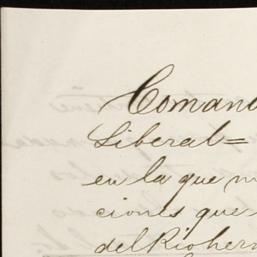 Comand
Liberal=
en la que m
ciones que
del Rio her